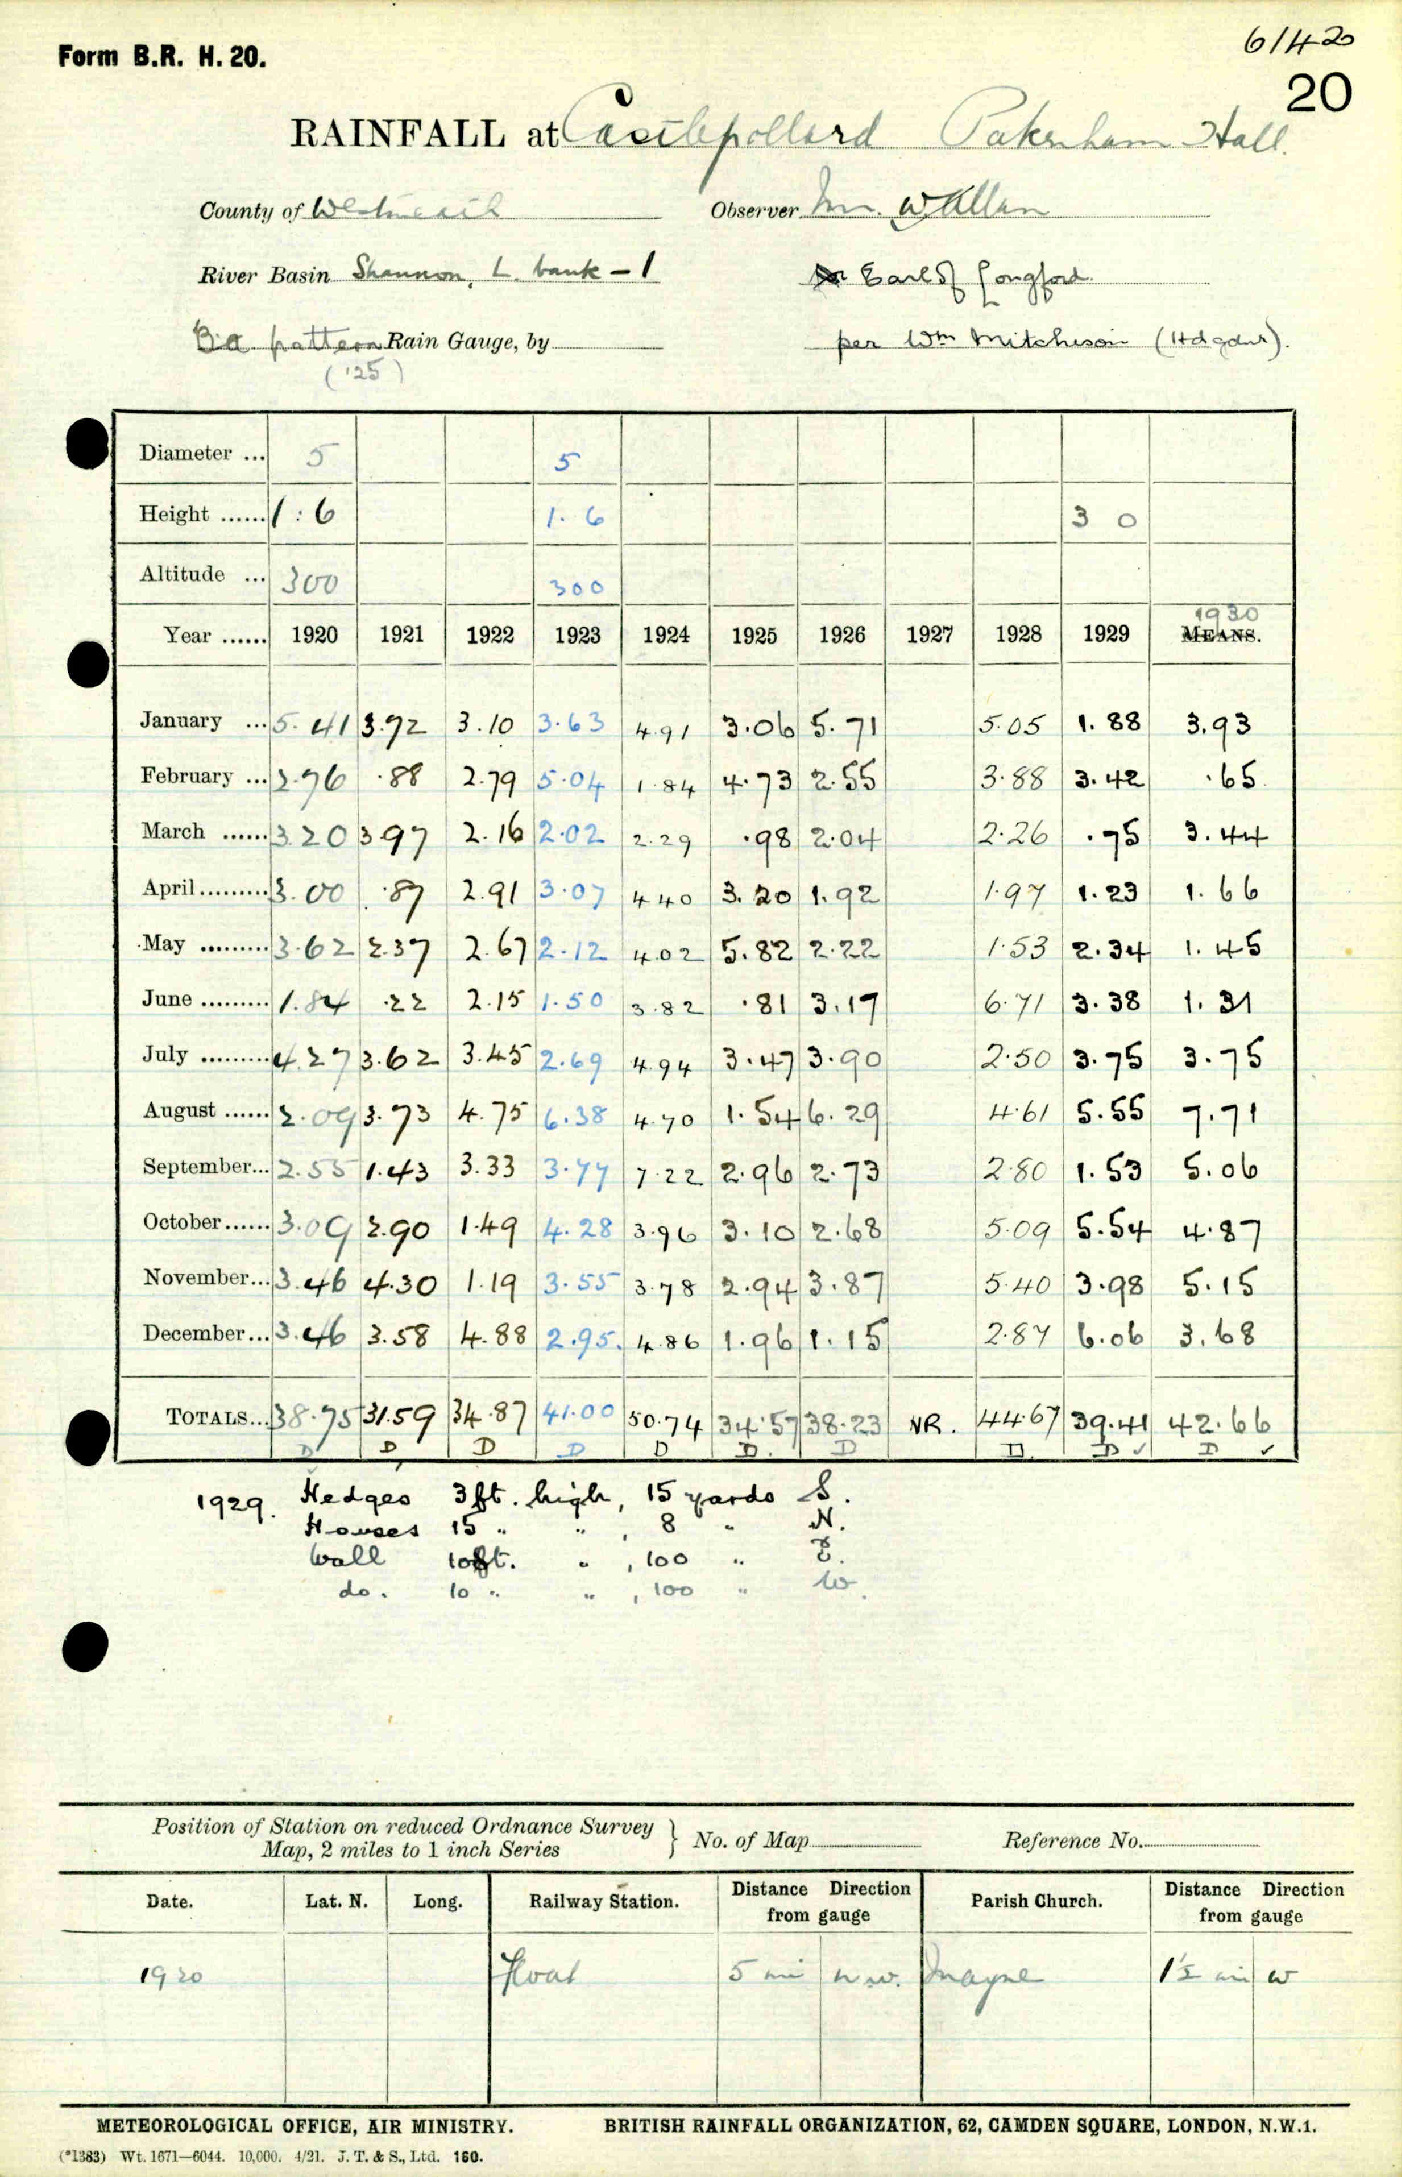 Form B.R. H. 20.
6142
20
RAINFALL at Castlepollard Pakenham Hall.
County of Westmeath Observer Mr. W Allan
River Basin Shannon, L. bank - 1 Earl of Longford
B.a. pattern Rain Gauge, by per Wm Mitchison (Hd gdnr).
('25)
Diameter ... 5 5
Height ...... 1 : 6 1. 6 3 0
Altitude ... 300 300
1930
Year ...... 1920 1921 1922 1923 1924 1925 1926 1927 1928 1929 MEANS.
January ... 5.41 3.72 3.10 3.63 4.91 3.06 5.71 5.05 1.88 3.93
February ... 2.76 .88 2.79 5.04 1.84 4.73 2.55 3.88 3.42 .65
March ...... 3.20 3.97 2.16 2.02 2.29 .98 2.04 2.26 .75 3.44
April ......... 3.00 .87 2.91 3.07 4.40 3.20 1.92 1.97 1.23 1.66
May ......... 3.62 2.37 2.67 2.12 4.02 5.82 2.22 1.53 2.34 1.45
June ......... 1.84 .22 2.15 1.50 3.82 .81 3.17 6.71 3.38 1.31
July ......... 4.27 3.62 3.45 2.69 4.94 3.47 3.90 2.50 3.75 3.75
August ...... 2.09 3.73 4.75 6.38 4.70 1.54 6.29 4.61 5.55 7.71
September... 2.55 1.43 3.33 3.77 7.22 2.96 2.73 2.80 1.53 5.06
October...... 3.09 2.90 1.49 4.28 3.96 3.10 2.68 5.09 5.54 4.87
November... 3.46 4.30 1.19 3.55 3.78 2.94 3.87 5.40 3.98 5.15
December... 3.46 3.58 4.88 2.95. 4.86 1.96 1.15 2.87 6.06 3.68
TOTALS... 38.75 31.59 34.87 41.00 50.74 34.57 38.23 NR. 44.67 39.41 42.66
D D D D D D. D D. D ✓ D ✓
1929. Hedges 3ft. high, 15 yards S.
Houses 15 " " , 8 " N.
Wall 10ft. " , 100 " E.
do. 10 " " , 100 " W.
Position of Station on reduced Ordnance Survey
Map, 2 miles to 1 inch Series } No. of Map Reference No.
Date. Lat. N. Long. Railway Station. Distance Direction from gauge Parish Church. Distance Direction from gauge
1920 Float 5 mi N.W. Mayne 1½ mi W
METEOROLOGICAL OFFICE, AIR MINISTRY. BRITISH RAINFALL ORGANIZATION, 62, CAMDEN SQUARE, LONDON, N.W.1.
(*1383) Wt. 1671—6044. 10,000. 4/21. J. T. & S., Ltd. 160.